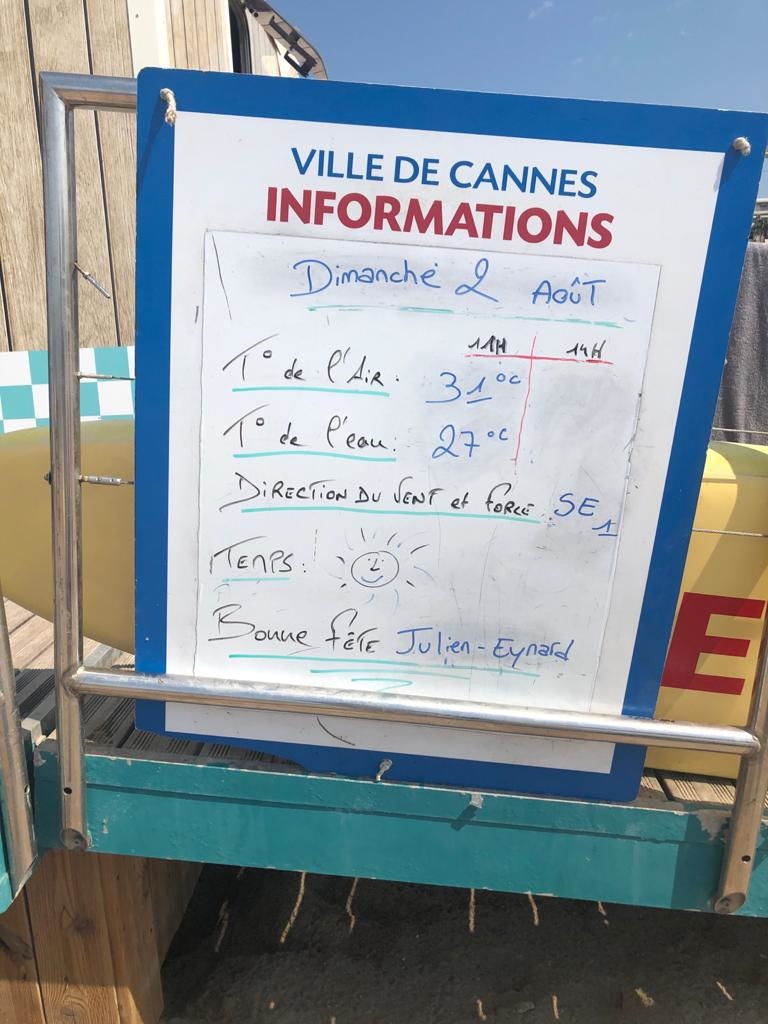 VILLE DE CANNES
INFORMATIONS
Dimanche 2 AOÛT
11H 14H
T° de l'Air : 31°C
T° de l'eau : 27°C
DIRECTION DU VENT et FORCE : SE 1
TEMPS :
Bonne FÊTE Julien - Eymard
E